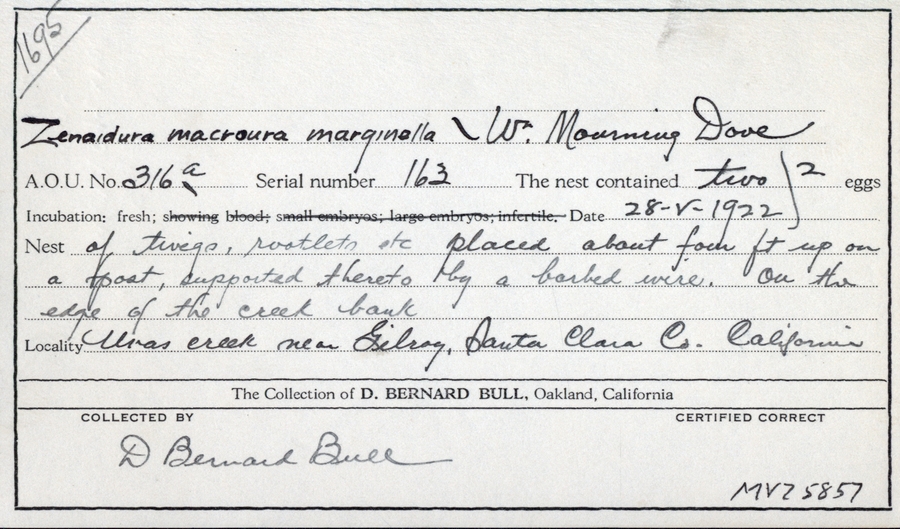 1695
Zenaidura macroura marginella \ Wn. Mourning Dove
A.O.U. No. 316a Serial number 163 The nest contained two ) 2 eggs
Incubation: fresh; showing blood; small embryos; large embryos; infertile. Date 28-V-1922
Nest of twigs, rootlets etc placed about four ft up on
a post, supported thereto by a barbed wire. On the
edge of the creek bank
Locality Uvas creek near Gilroy, Santa Clara Co. California
The Collection of D. BERNARD BULL, Oakland, California
COLLECTED BY CERTIFIED CORRECT
D Bernard Bull
MVZ 5857